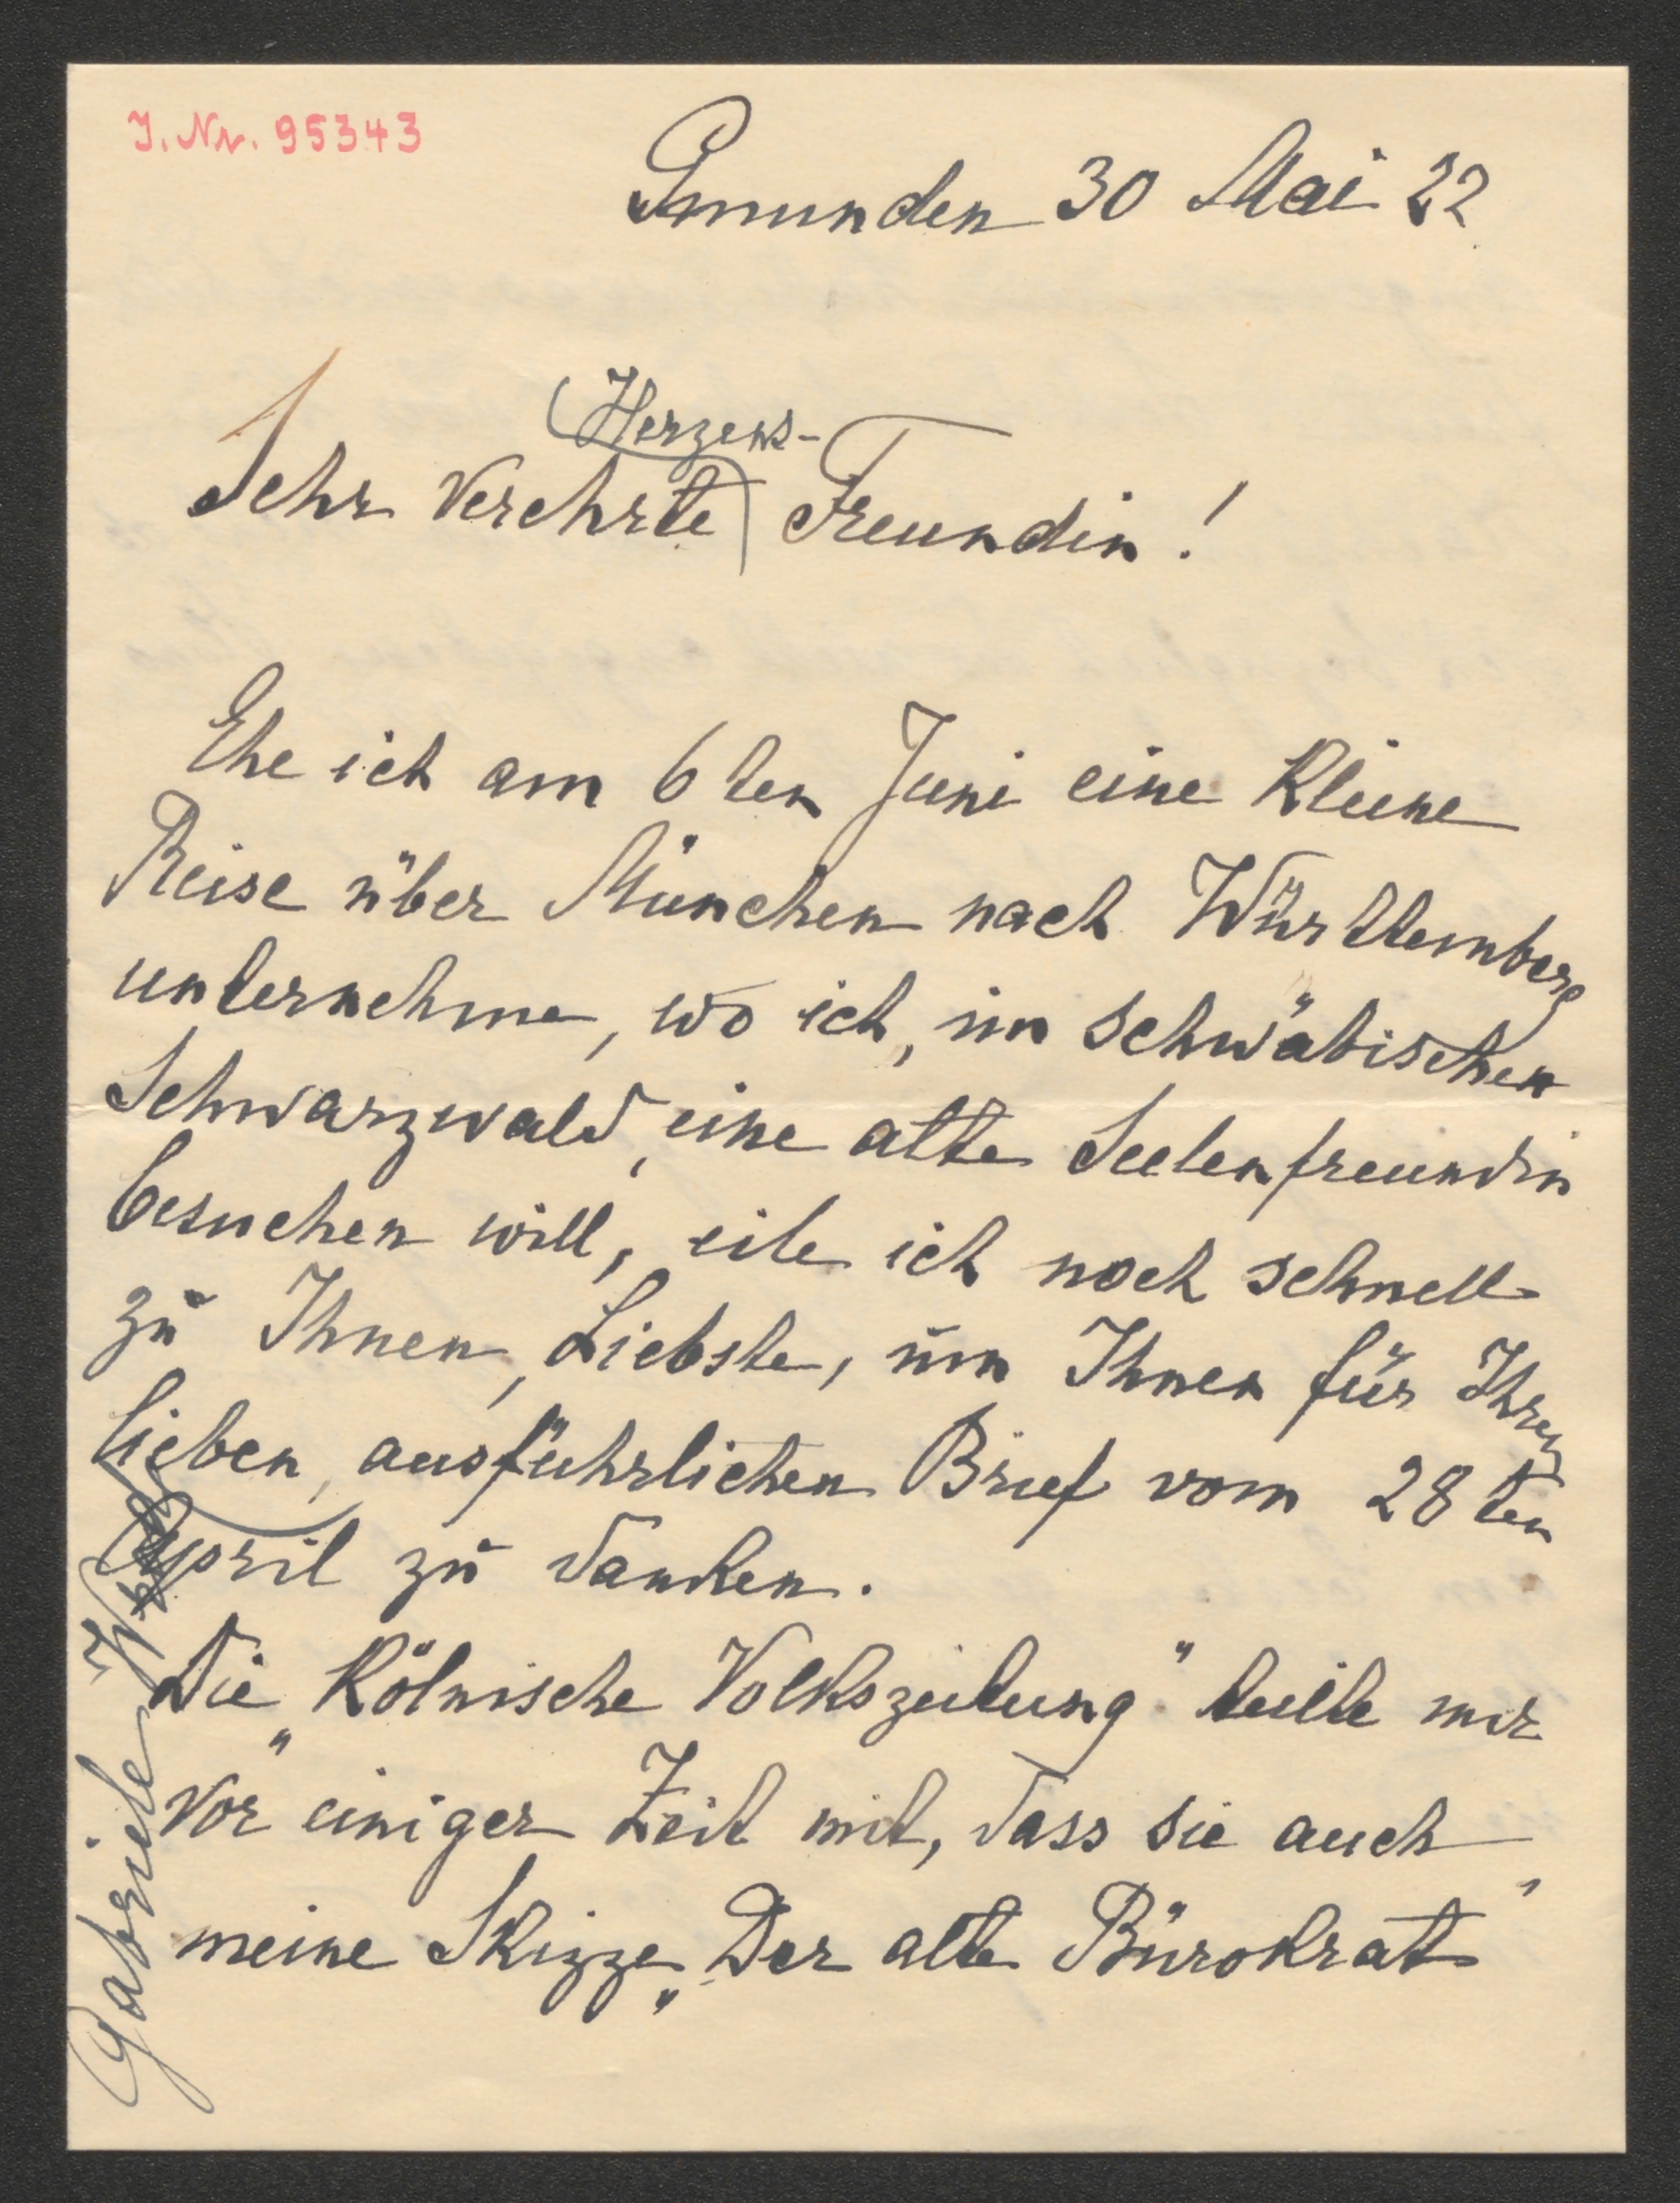 J. Nr. 95343
Gmunden 30 Mai 22
Herzens-
Sehr verehrte Freundin!
Ehe ich am 6ten Juni eine kleine
Reise über München nach Württemberg
unternehme, wo ich, im schwäbischen
Schwarzwald, eine alte Seelenfreundin
besuchen will, eile ich noch schnell
zu Ihnen, Liebste, um Ihnen für Ihren
lieben, ausführlichen Brief vom 28ten
April zu danken.
Die „Kölnische Volkszeitung" teilte mir
vor einiger Zeit mit, dass sie auch
meine Skizze „Der alte Bürokrat"
Gabriele